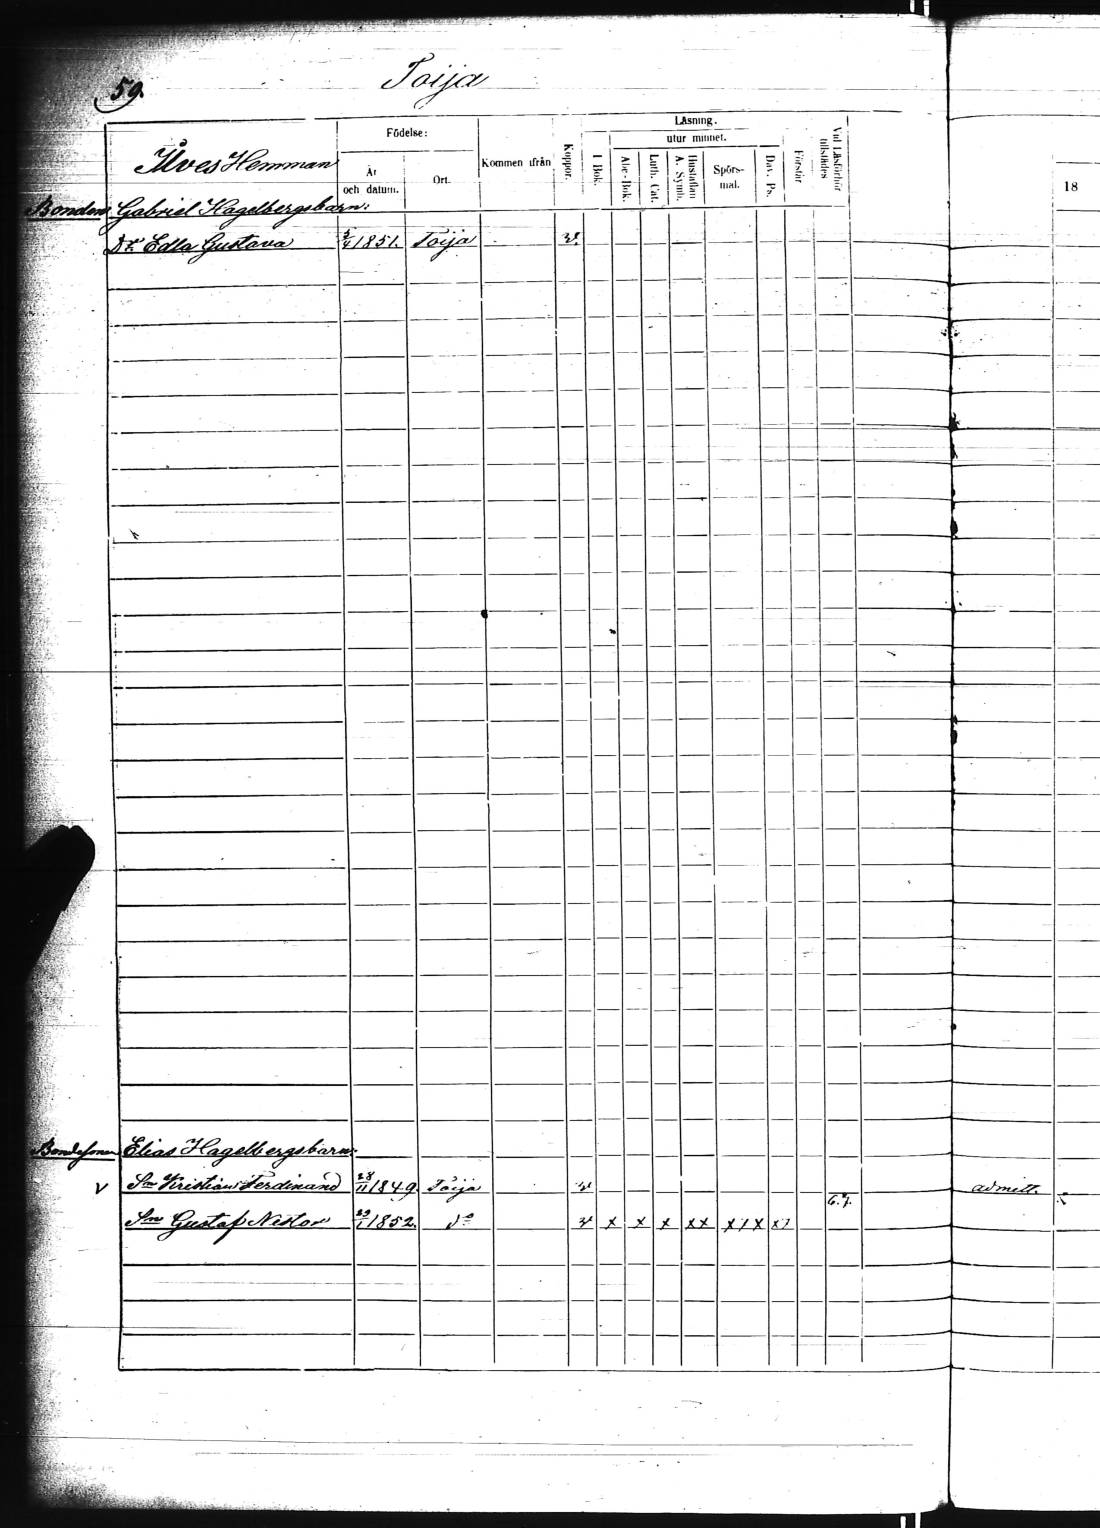 59.
Toija
Födelse:
Läsning.
utur minnet.
Ilves Hemman
År
och datum.
Ort.
Kommen ifrån
Koppor.
I Bok.
Abc-Bok.
Luth. Cat.
Hustaflan
A. Symb.
Spörs-
mal.
Dav. Ps.
Förstår
Vid Läsförhör
tillstädes
18
Bonden Gabriel Hagelbergs barn:
Dr Edla Gustava 5/4 1851. Toija v.
Bondesonen Elias Hagelbergs barn:
V Sn Kristian Ferdinand 28/11 1849. Toija v admitt.
6.7.
Sn Gustaf Nestor 29/1 1852. do v x x x xx x/x x/